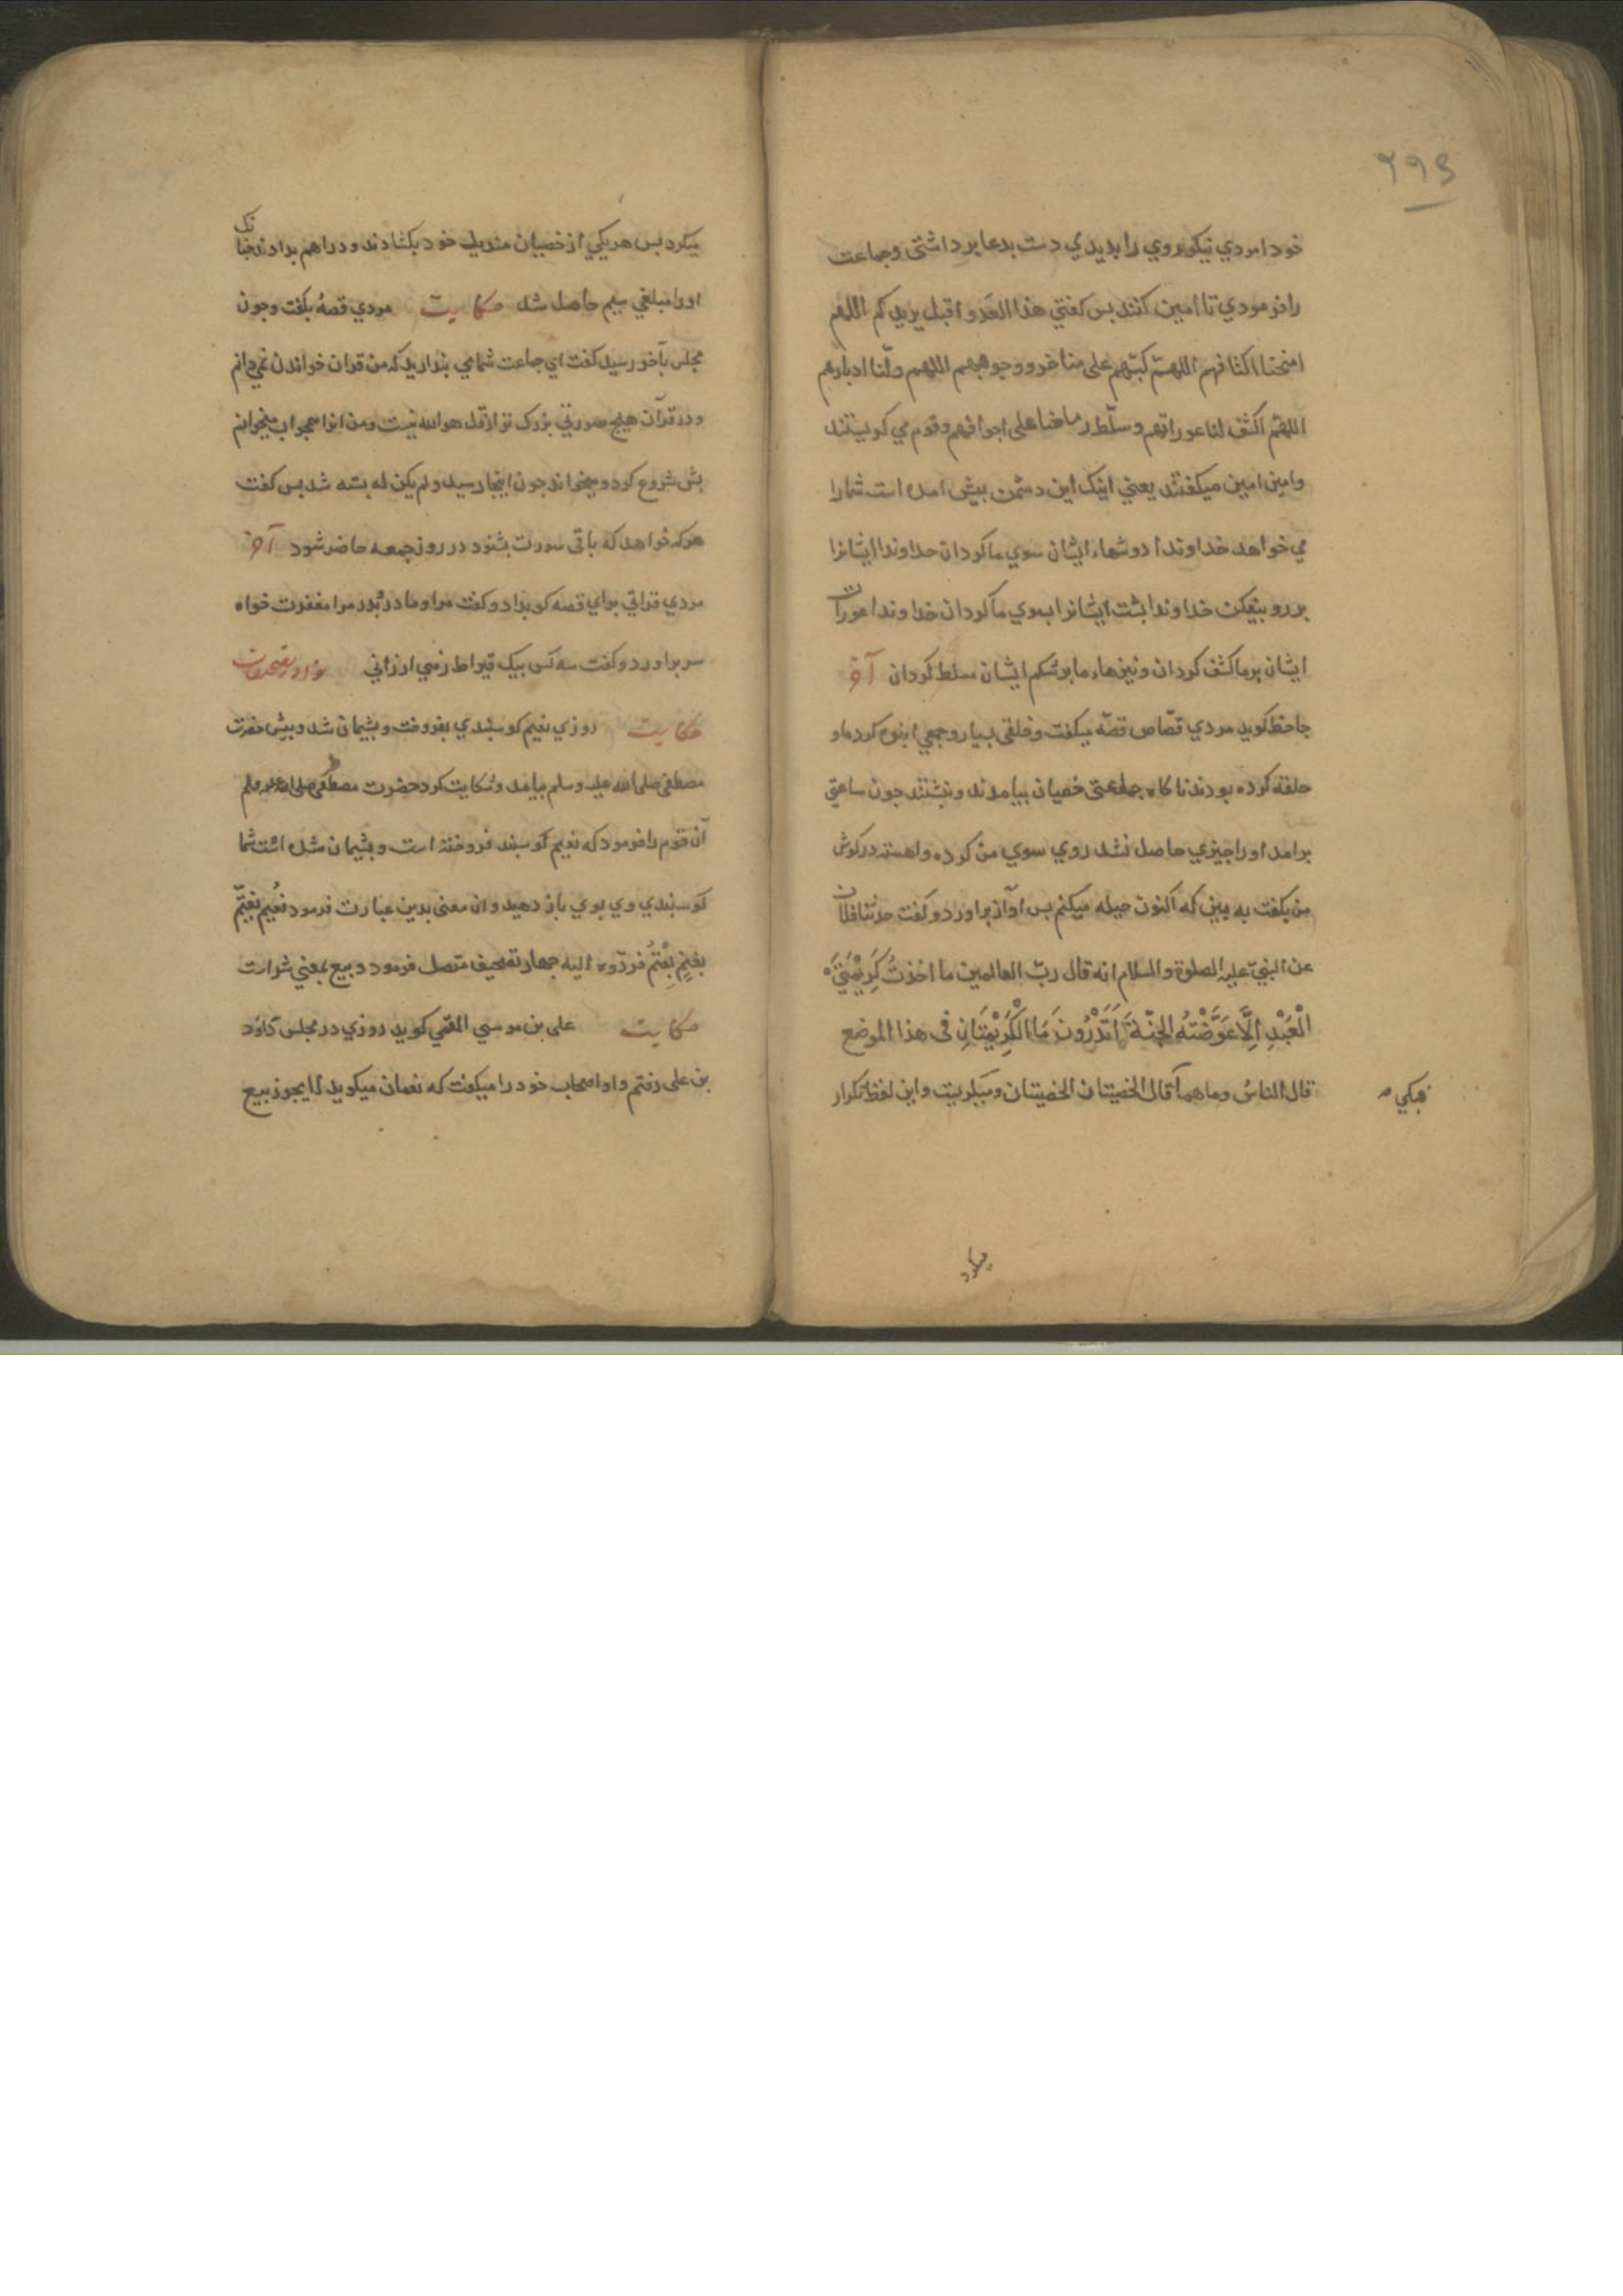 ۲۹۳
خود امردي نیکوروي را بدیدي دست بدعا برداشتی وجماعت
را فرمودي تا امین کنند بس کفتي هذا العدو اقبل یریدکم اللهم
امنحنا اکتافهم اللهم کبّهم علی مناخر ووجوههم اللهم ولّنا ادبارهم
اللهم اکشف لنا عوراتهم وسلّط رماحنا علی اجوافهم وقوم می کریستند
وامین امین میکفتند یعني اینک این دشمن بیش امده است شمارا
می خواهد خداوندا دوشهاء ایشان سوي ما کردان خداوندا ایشانرا
بررو بیفکن خداوندا بشت ایشانرا بسوي ما کردان خداوندا عورات
ایشان برما کشف کردان ونیزهاء ما برشکم ایشان مسلط کردان آخر
جاحظ کوید مردي قصّاص قصّه میکفت وخلقی بسیار وجمعي انبوه کرد او
حلقه کرده بودند ناکاه جماعتی خصیان بیامدند وبنشستند جون ساعتی
برامد اورا جیزي حاصل نشد روي سوي من کرده واهسته درکوش
من بکفت به بین که اکنون حیله میکنم بس اواز براورد وکفت حدثنا فلان
عن النبيّ علیه الصلوة والسلام انه قال ربّ العالمین ما اخذتُ کَرِیْمَتَيْ
الْعَبْدِ اِلَّا عَوَّضْتُهُ الجنّةَ اَتَدْرُونَ مَا الْکَرِیْمَتَانِ فی هذا الموضع
قال الناسُ وما هما قال الخصیتان الخصیتان ومیکریست واین لفظ تکرار
میکرد
میکرد بس هریکي از خصیان مندیل خود بکشادند ودراهم بدادند جنانک
اورا مبلغي سیم حاصل شد حکایت مردي قصهٔ بکفت وجون
مجلس بآخر رسید کفت اي جماعت شما می بنداریدکه من قران خواندن نمی دانم
ودر قرآن هیچ سورتي بزرک تر از قل هو الله نیست ومن انرا همجو اب میخوانم
بس شروع کرد ومیخواند جون اینجا رسید ولم یکن له بسته شد بس کفت
هرکه خواهد که باقی سورت بشنود در روز جمعه حاضر شود آخر
مردي قراتی براي قصه کو بداد وکفت مرا ومادر وبدر مرا مغفرت خواه
سر براورد وکفت سه کس بیک قیراط زهی ارزاني نوادر تصحیفات
حکایت روزي نعیم کوسبندي بفروخت وبشیمان شد وبیش حضرت
مصطفی صلی الله علیه وسلم بیامد وشکایت کرد حضرت مصطفی صلی الله علیه وسلم
آن قوم را فرمود که نعیم کوسبند فروخته است وبشیمان شده است شما
کوسبندي وي بوي باز دهید وان معنی بدین عبارت فرمود نُعَیم نَعیّم
بغنمٍ بِعْتُم فردّوه الیه جهار تصحیف متصل فرمود وبیع بمعني شراست
حکایت علی بن موسي القمي کوید روزي در مجلس داوُد
بن علی رفتم واو اصحاب خود را میکفت که نعمان میکوید لا یجوز بیع